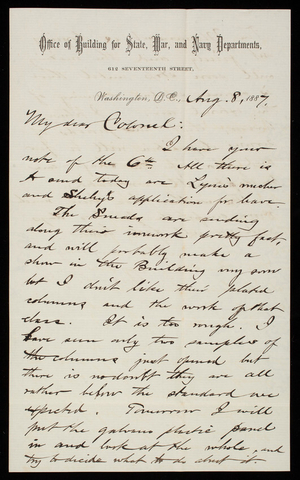 Office of Building for State, War, and Navy Departments,
612 SEVENTEENTH STREET,
Washington, D.C., Aug. 8, 1887.
My dear Colonel:
I have your
note of the 6th. All there is
to send today are Lyons' voucher
and application for leave.
The Sneads are sending
along their ironwork pretty fast
and will probably make a
show in the Building
but I don't like their plated
columns and the work of that
class. It is too rough. I
have seen only two samples of
the columns just opened but
there is no doubt they are all
rather below the standard we
expected. Tomorrow I will
put the galvano plastic panel
in and look at the whole, and
try to decide what to do about it.